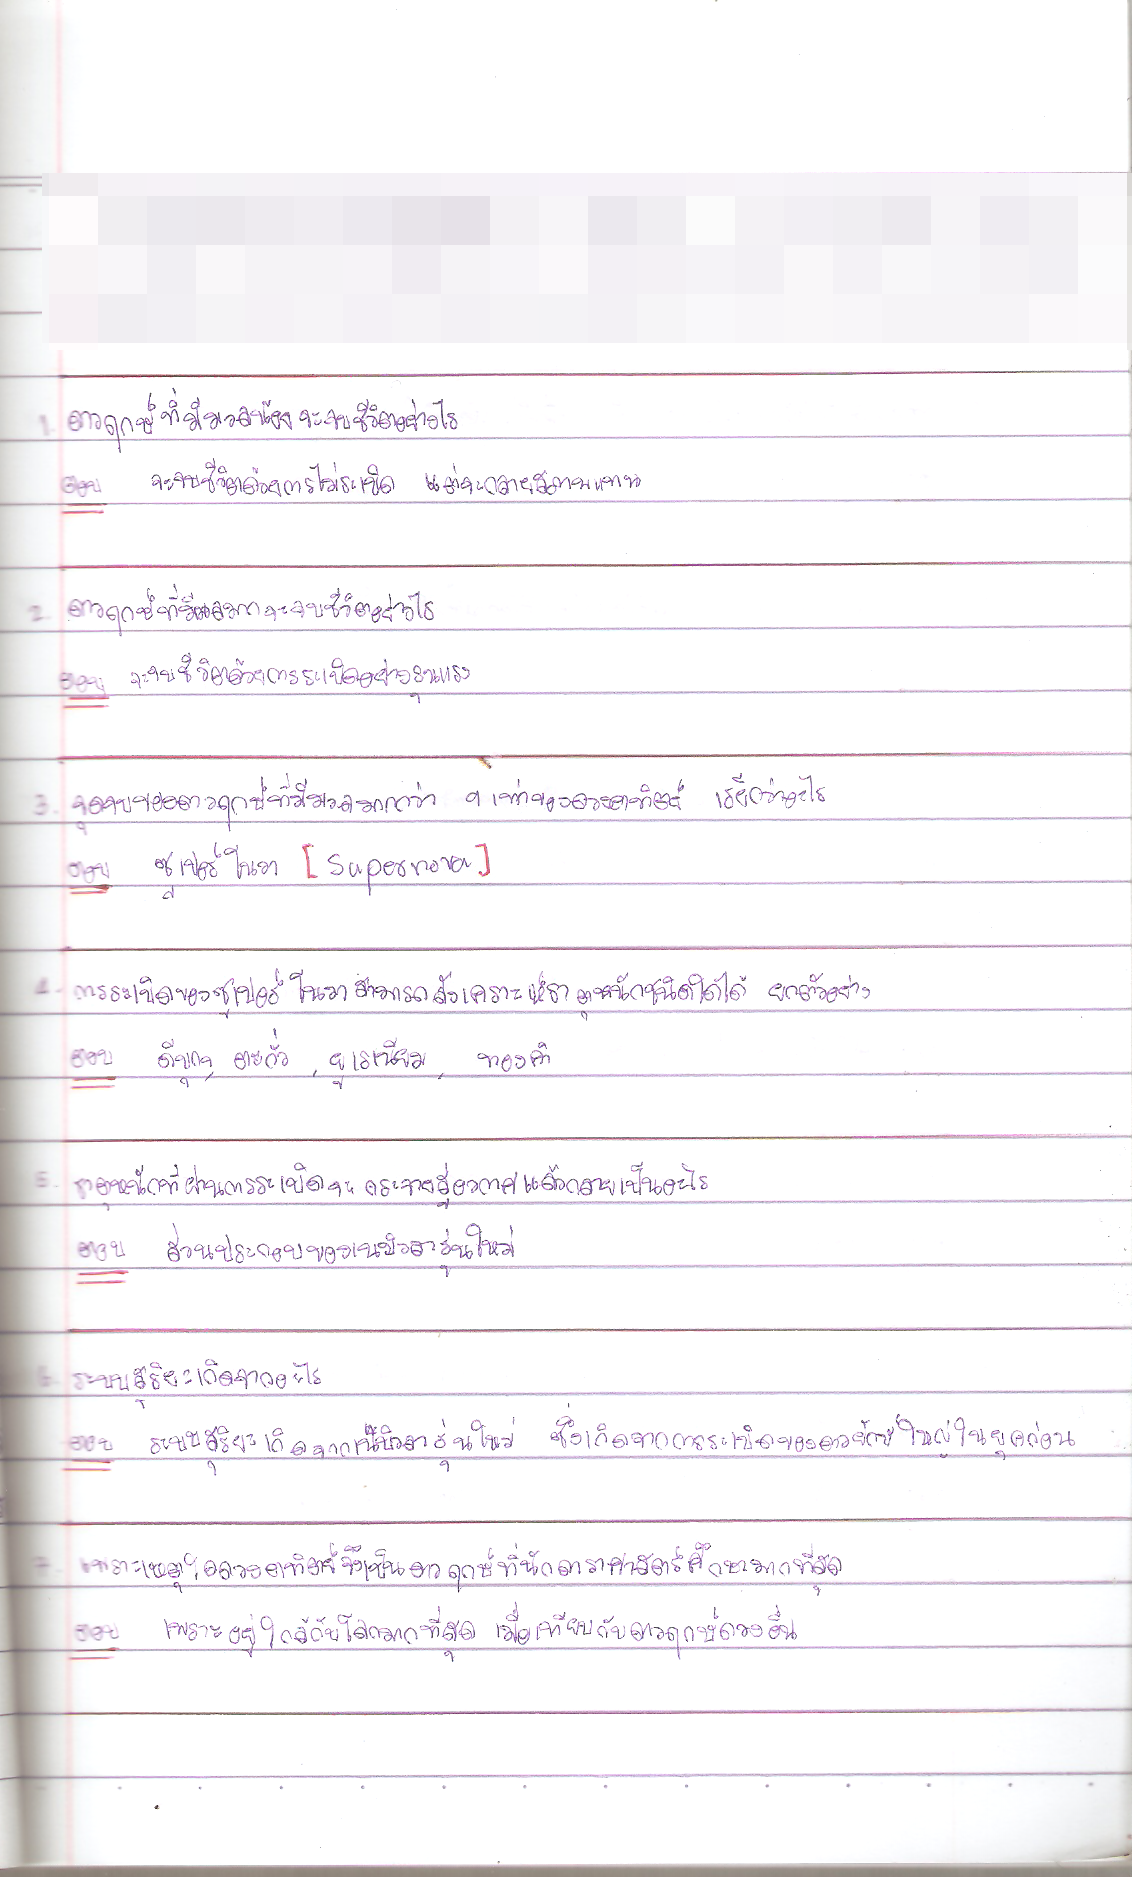 1. ดาวฤกษ์ที่มีมวลน้อยจะจบชีวิตอย่างไร
ตอบ จะจบชีวิตด้วยการไม่ระเบิด แต่จะกลายสภาพแทน
2. ดาวฤกษ์ที่มีมวลมากจะจบชีวิตอย่างไร
ตอบ จะจบชีวิตด้วยการระเบิดอย่างรุนแรง
3. จุดจบของดาวฤกษ์ที่มีมวลมากกว่า 9 เท่าของดวงอาทิตย์ เรียกว่าอะไร
ตอบ ซูเปอร์โนวา [Supernova]
4. การระเบิดของซูเปอร์โนวาสามารถสังเคราะห์ธาตุหนักชนิดใดได้ ยกตัวอย่าง
ตอบ ดีบุก, ตะกั่ว, ยูเรเนียม, ทองคำ
5. ธาตุหนักที่ผ่านการระเบิดจะกระจายสู่อวกาศแล้วกลายเป็นอะไร
ตอบ ส่วนประกอบของเนบิวลารุ่นใหม่
6. ระบบสุริยะเกิดจากอะไร
ตอบ ระบบสุริยะเกิดจากเนบิวลารุ่นใหม่ ซึ่งเกิดจากการระเบิดของดาวยักษ์ใหญ่ในยุคก่อน
7. เพราะเหตุใดดวงอาทิตย์จึงเป็นดาวฤกษ์ที่นักดาราศาสตร์ศึกษามากที่สุด
ตอบ เพราะอยู่ใกล้กับโลกมากที่สุด เมื่อเทียบกับดาวฤกษ์ดวงอื่น